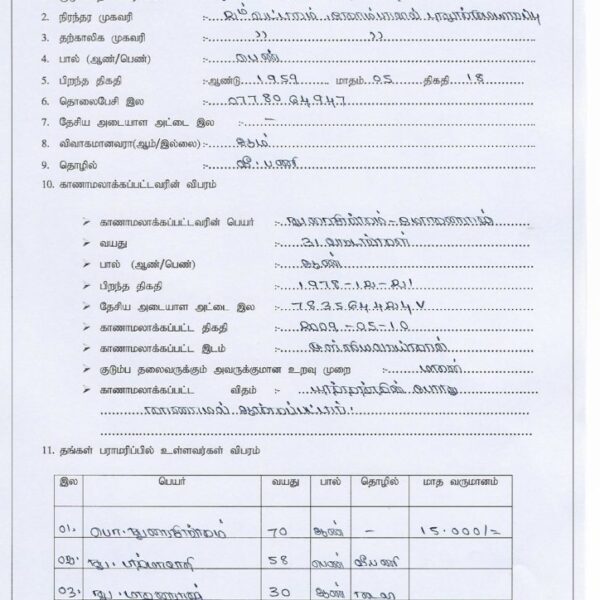 2. நிரந்தர முகவரி :-
3. தற்காலிக முகவரி :- ,, ,,
4. பால் (ஆண்/பெண்) :- பெண்
5. பிறந்த திகதி :-ஆண்டு 1959 மாதம் 05 திகதி 18
6. தொலைபேசி இல :- 0778064947
7. தேசிய அடையாள அட்டை இல :- -
8. விவாகமானவரா(ஆம்/இல்லை):- ஆம்
9. தொழில் :- வீ.பணி
10. காணாமலாக்கப்பட்டவரின் விபரம்
➢ காணாமலாக்கப்பட்டவரின் பெயர் :-
➢ வயது :- 31
➢ பால் (ஆண்/பெண்) :- ஆண்
➢ பிறந்த திகதி :- 1978-12-21
➢ தேசிய அடையாள அட்டை இல :- 783564424V
➢ காணாமலாக்கப்பட்ட திகதி :- 2009-05-10
➢ காணாமலாக்கப்பட்ட இடம் :- முள்ளிவாய்க்கால்
➢ குடும்ப தலைவருக்கும் அவருக்குமான உறவு முறை :- மகன்
➢ காணாமலாக்கப்பட்ட விதம் :- யுத்தத்தின் போது
காணாமல் ஆக்கப்பட்டார்.
11. தங்கள் பராமரிப்பில் உள்ளவர்கள் விபரம்
இல பெயர் வயது பால் தொழில் மாத வருமானம்
01. 70 ஆண் - 15.000/=
02. 58 பெண் வீ.பணி
03. 30 ஆண்